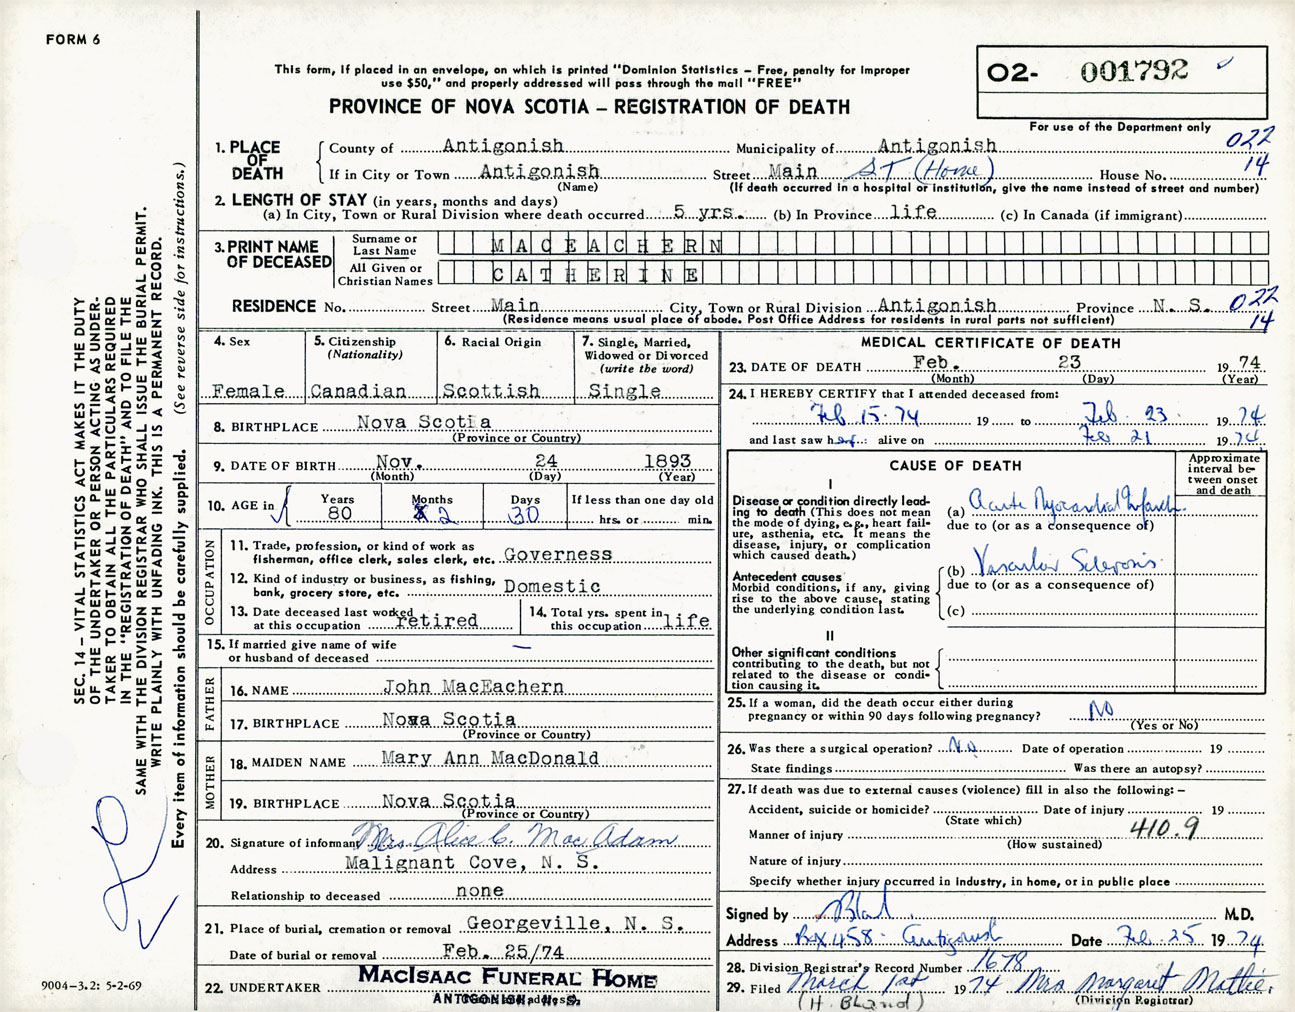 FORM 6
This form, if placed in an envelope, on which is printed "Dominion Statistics – Free, penalty for improper
use $50," and properly addressed will pass through the mail "FREE"
PROVINCE OF NOVA SCOTIA – REGISTRATION OF DEATH
O2- 001792
For use of the Department only
SEC. 14 – VITAL STATISTICS ACT MAKES IT THE DUTY
OF THE UNDERTAKER OR PERSON ACTING AS UNDER-
TAKER TO OBTAIN ALL THE PARTICULARS REQUIRED
IN THE "REGISTRATION OF DEATH" AND TO FILE THE
SAME WITH THE DIVISION REGISTRAR WHO SHALL ISSUE THE BURIAL PERMIT.
WRITE PLAINLY WITH UNFADING INK. THIS IS A PERMANENT RECORD.
Every item of information should be carefully supplied. (See reverse side for instructions.)
9004-3.2: 5-2-69
1. PLACE OF DEATH
County of Antigonish Municipality of Antigonish 022
If in City or Town Antigonish Street Main ST (Home) House No. 14
(Name) (If death occurred in a hospital or institution, give the name instead of street and number)
2. LENGTH OF STAY (in years, months and days)
(a) In City, Town or Rural Division where death occurred 5 yrs. (b) In Province life (c) In Canada (if immigrant)
3. PRINT NAME OF DECEASED
Surname or Last Name MACEACHERN
All Given or Christian Names CATHERINE
RESIDENCE No. Street Main City, Town or Rural Division Antigonish Province N. S. 022
(Residence means usual place of abode. Post Office Address for residents in rural parts not sufficient) 14
4. Sex Female
5. Citizenship (Nationality) Canadian
6. Racial Origin Scottish
7. Single, Married, Widowed or Divorced (write the word) Single
8. BIRTHPLACE Nova Scotia
(Province or Country)
9. DATE OF BIRTH Nov. 24 1893
(Month) (Day) (Year)
10. AGE in Years 80 Months 2 Days 30 If less than one day old hrs. or min.
OCCUPATION
11. Trade, profession, or kind of work as
fisherman, office clerk, sales clerk, etc. Governess
12. Kind of industry or business, as fishing,
bank, grocery store, etc. Domestic
13. Date deceased last worked
at this occupation retired
14. Total yrs. spent in
this occupation life
15. If married give name of wife
or husband of deceased —
FATHER
16. NAME John MacEachern
17. BIRTHPLACE Nova Scotia
(Province or Country)
MOTHER
18. MAIDEN NAME Mary Ann MacDonald
19. BIRTHPLACE Nova Scotia
(Province or Country)
20. Signature of informant Mrs. Alice C. MacAdam
Address Malignant Cove, N. S.
Relationship to deceased none
21. Place of burial, cremation or removal Georgeville, N. S.
Date of burial or removal Feb. 25/74
22. UNDERTAKER MacIsaac Funeral Home
ANTIGONISH, N. S.
MEDICAL CERTIFICATE OF DEATH
23. DATE OF DEATH Feb. 23 19 74
(Month) (Day) (Year)
24. I HEREBY CERTIFY that I attended deceased from:
Feb 15-74 19 to Feb. 23 19 74
and last saw her: alive on Feb 21 19 74
CAUSE OF DEATH
Approximate
interval be-
tween onset
and death
I
Disease or condition directly lead-
ing to death (This does not mean
the mode of dying, e.g., heart fail-
ure, asthenia, etc. It means the
disease, injury, or complication
which caused death.)
(a) Acute Myocardial Infarct
due to (or as a consequence of)
Antecedent causes
Morbid conditions, if any, giving
rise to the above cause, stating
the underlying condition last.
(b) Vascular Sclerosis
due to (or as a consequence of)
(c)
II
Other significant conditions
contributing to the death, but not
related to the disease or condi-
tion causing it.
25. If a woman, did the death occur either during
pregnancy or within 90 days following pregnancy? No
(Yes or No)
26. Was there a surgical operation? No Date of operation 19
State findings Was there an autopsy?
27. If death was due to external causes (violence) fill in also the following: –
Accident, suicide or homicide? Date of injury 19
(State which)
Manner of injury 410.9
(How sustained)
Nature of injury
Specify whether injury occurred in industry, in home, or in public place
Signed by Bland M.D.
Address Box 458 Antigonish Date Feb 25 19 74
28. Division Registrar's Record Number 1678
29. Filed March 1st 1974 Mrs Margaret Mattie
(H. Bland) (Division Registrar)